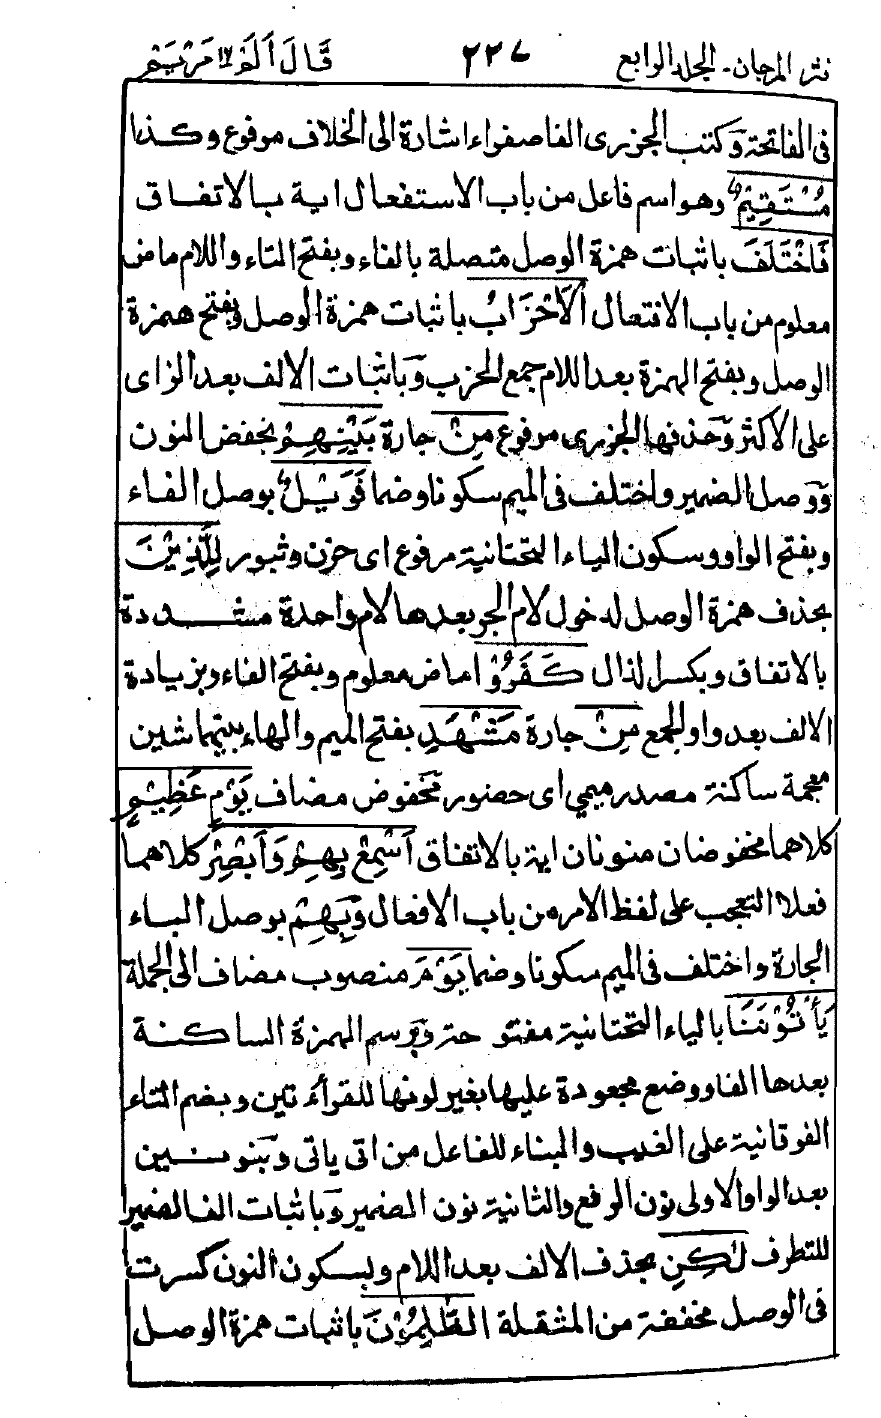 نثر المرجان - الجلد الرابع ٢٢٧ قَالَ اَلَمْ ١٦ مَرْيَم
فى الفاتحة وَكتب الجزرى الفا صفراء اشارة الى الخلاف مرفوع وكذا
مُسْتَقِيْمٌ وهو اسم فاعل من باب الاستفعال اية بالاتفاق
فَاخْتَلَفَ باثبات همزة الوصل متصلة بالفاء وبفتح التاء واللام ماض
معلوم من باب الافتعال اَلْاَحْزَابُ باثبات همزة الوصل وبفتح همزة
الوصل وبفتح الهمزة بعد اللام جمع الحزب وَباثبات الالف بعد الزاى
على الاكثر وَحذفها الجزرى مرفوع مِنْ جارة بَيْنِهِمْ بخفض النون
وَوصل الضمير واختلف فى الميم سكونا وضما فَوَيْلٌ بوصل الفاء
وبفتح الواو وسكون الياء التحتانية مرفوع اى حزن وثبور لِلَّذِيْنَ
بحذف همزة الوصل لدخول لام الجر وبعدها لام واحدة مشددة
بالاتفاق وبكسر الذال كَفَرُوْا ماض معلوم وبفتح الفاء وبزيادة
الالف بعد واو الجمع مِنْ جارة مَشْهَدِ بفتح الميم والهاء بينهما شين
معجمة ساكنة مصدر ميمى اى حضور مخفوض مضاف يَوْمٍ عَظِيْمٍ
كلاهما مخفوضان منونان اية بالاتفاق اَسْمِعْ بِهِمْ وَاَبْصِرْ كلاهما
فعلا التعجب على لفظ الامر من باب الافعال وَبِهِمْ بوصل الباء
الجارة واختلف فى الميم سكونا وضما يَوْمَ منصوب مضاف الى الجملة
يَأْتُوْنَنَا بالياء التحتانية مفتوحة وَبرسم الهمزة الساكنة
بعدها الفا ووضع مجعودة عليها بغير لونها للقراءتين وبضم التاء
الفوقانية على الغيب والبناء للفاعل من اتى ياتى وَبنونين
بعد الواو الاولى نون الرفع والثانية نون الضمير وَباثبات الف الضمير
للتطرف لٰكِنِ بحذف الالف بعد اللام وبسكون النون كسرت
فى الوصل مخففة من المثقلة الظّٰلِمُوْنَ باثبات همزة الوصل